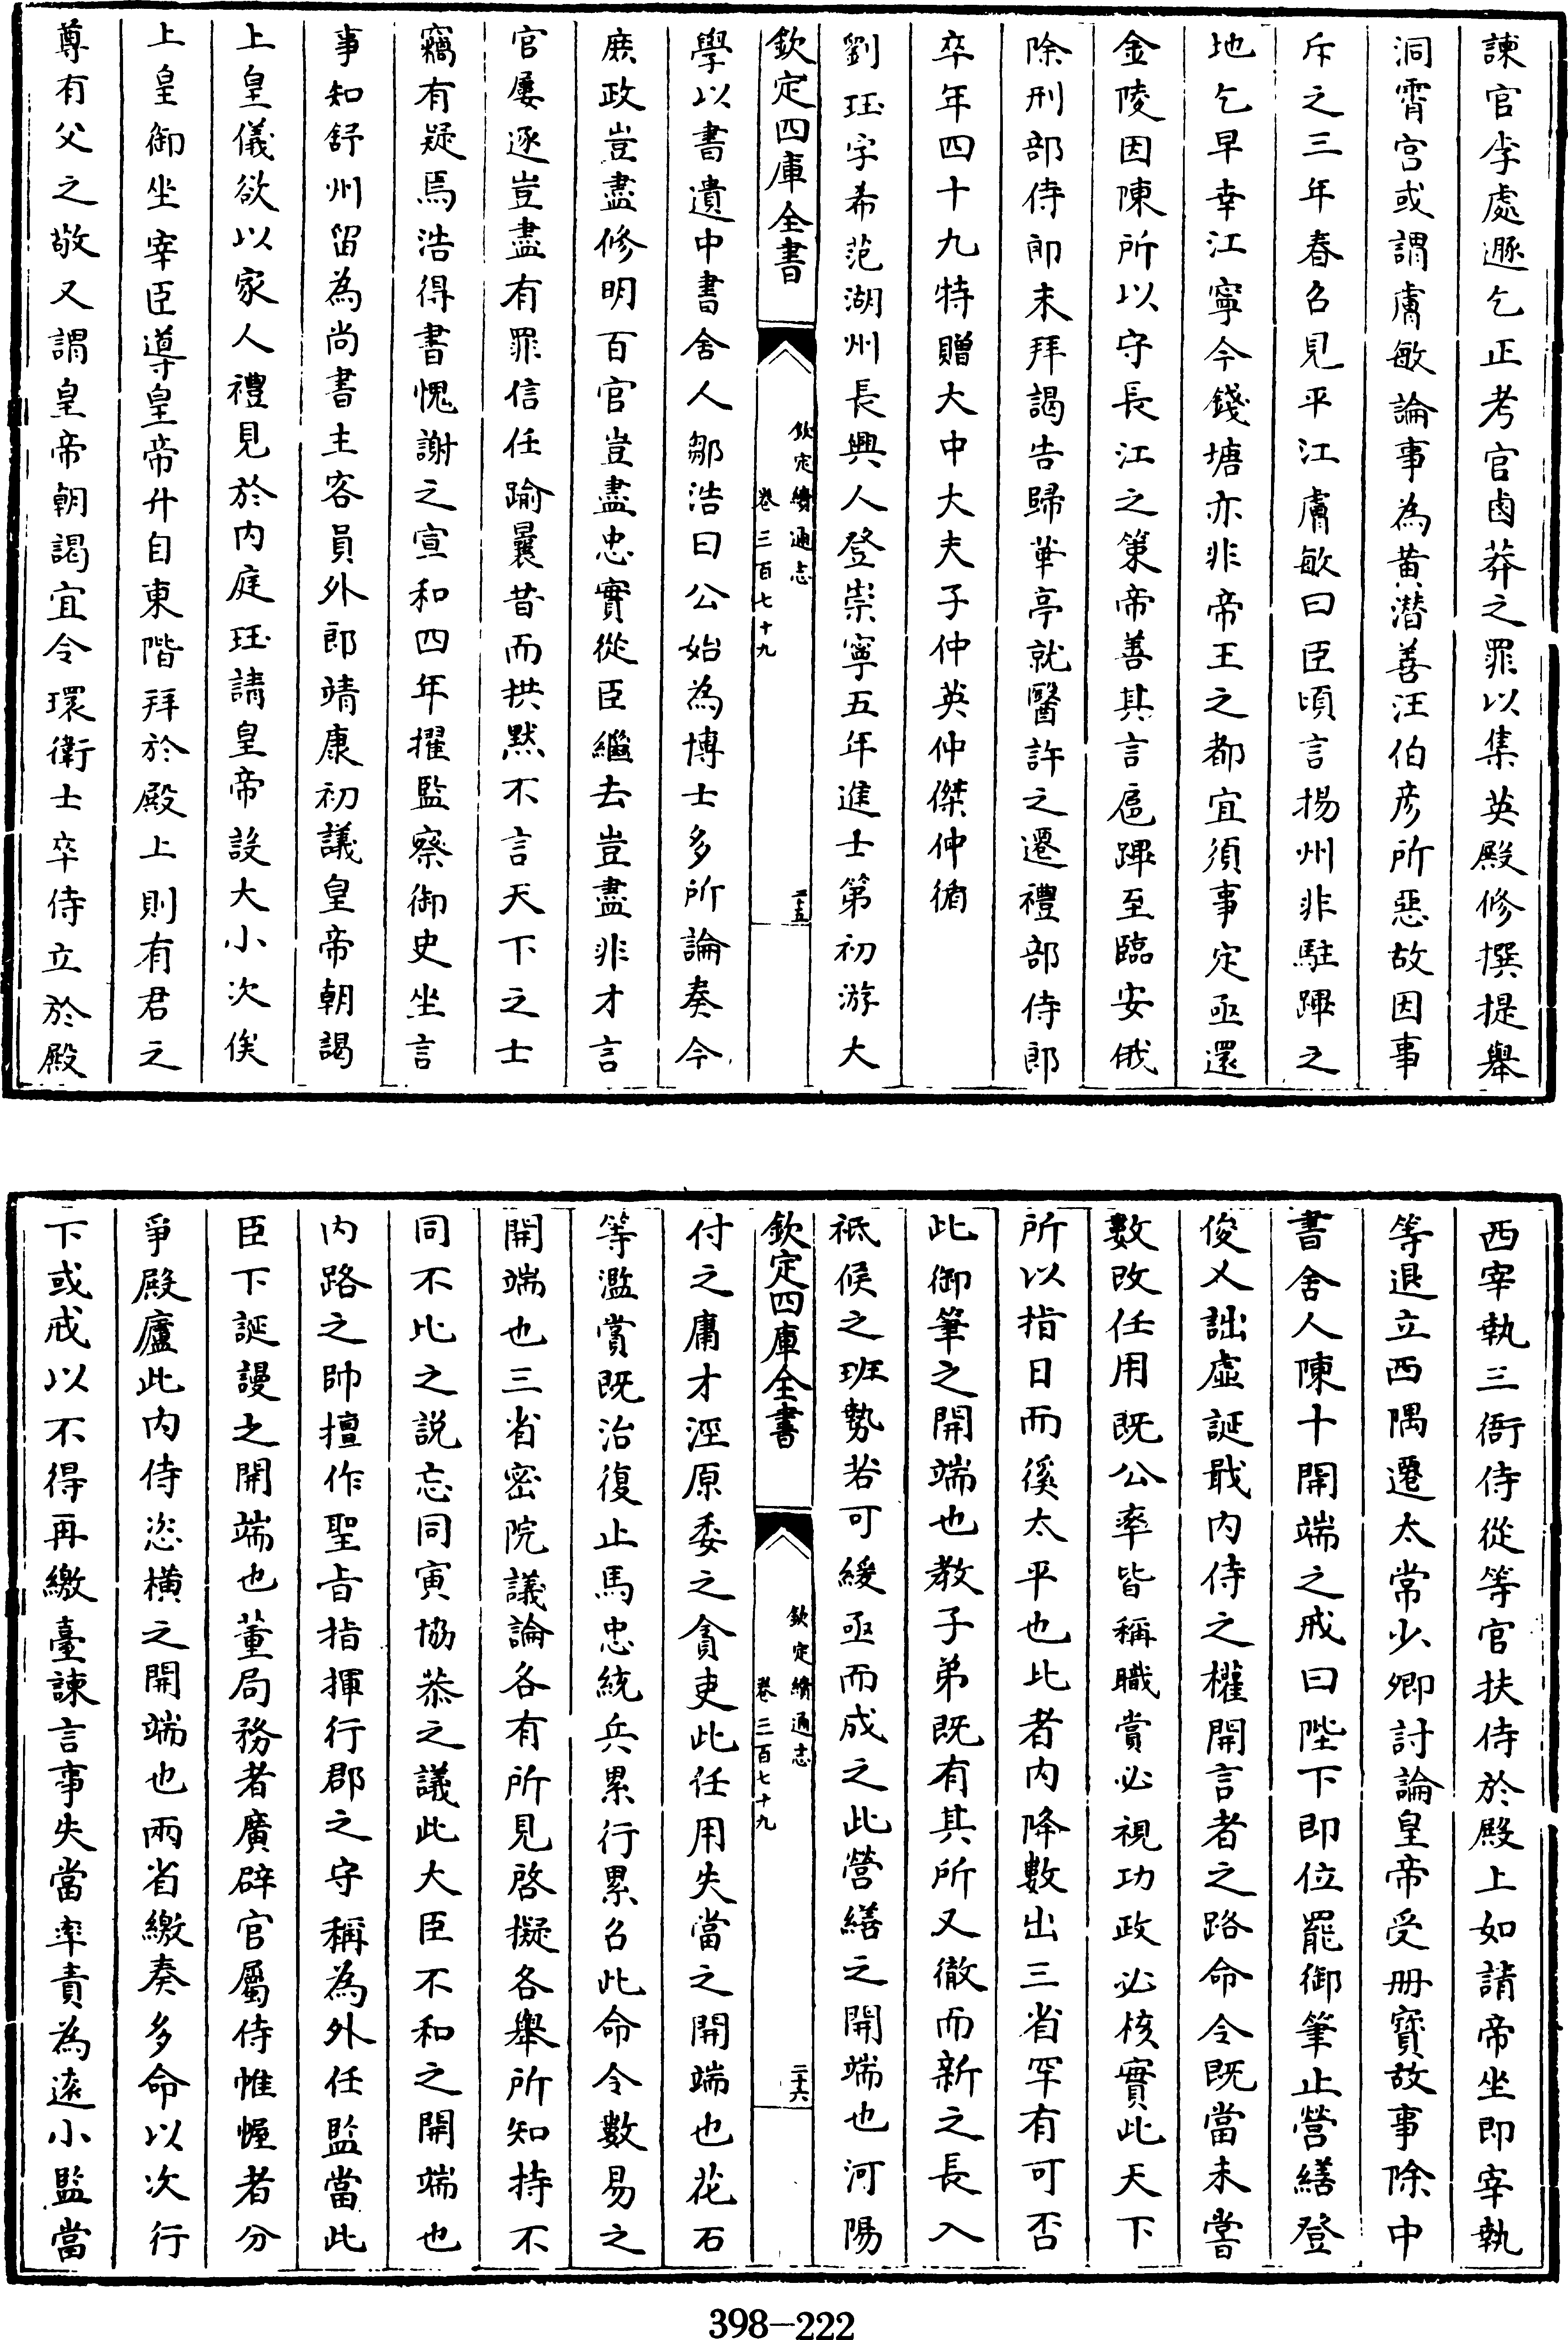 諫官李處遯乞正考官鹵莽之罪以集英殿修撰提舉
洞霄宮或謂膚敏論事為黃潛善汪伯彥所惡故因事
斥之三年春召見平江膚敏曰臣頃言揚州非駐蹕之
地乞早幸江寧今錢塘亦非帝王之都宜須事定亟還
金陵因陳所以守長江之策帝善其言扈蹕至臨安俄
除刑部侍郎未拜謁告歸華亭就醫許之遷禮部侍郎
卒年四十九特贈大中大夫子仲英仲傑仲循
劉珏字希范湖州長興人登崇寧五年進士第初游大
欽定四庫全書
欽定續通志
卷三百七十九
二十五
學以書遺中書舍人鄒浩曰公始為博士多所論奏今
庶政豈盡修明百官豈盡忠實從臣繼去豈盡非才言
官屢逐豈盡有罪信任踰曩昔而拱默不言天下之士
竊有疑焉浩得書愧謝之宣和四年擢監察御史坐言
事知舒州留為尚書主客員外郎靖康初議皇帝朝謁
上皇儀欲以家人禮見於內庭珏請皇帝設大小次俟
上皇御坐宰臣導皇帝升自東階拜於殿上則有君之
尊有父之敬又謂皇帝朝謁宜令環衛士卒侍立於殿
西宰執三衙侍從等官扶侍於殿上如請帝坐即宰執
等退立西隅遷太常少卿討論皇帝受冊寶故事除中
書舍人陳十開端之戒曰陛下即位罷御筆止營繕登
俊乂詘虛誕戢內侍之權開言者之路命令既當未嘗
數改任用既公率皆稱職賞必視功政必核實此天下
所以指日而徯太平也比者內降數出三省罕有可否
此御筆之開端也教子弟既有其所又徹而新之長入
祗候之班勢若可緩亟而成之此營繕之開端也河陽
欽定四庫全書
欽定續通志
卷三百七十九
二十六
付之庸才涇原委之貪吏此任用失當之開端也花石
等濫賞既治復止馬忠統兵累行累召此命令數易之
開端也三省密院議論各有所見啓擬各舉所知持不
同不比之説忘同寅協恭之議此大臣不和之開端也
內路之帥擅作聖旨指揮行郡之守稱為外任監當此
臣下誕謾之開端也董局務者廣辟官屬侍帷幄者分
爭殿廬此內侍恣橫之開端也兩省繳奏多命以次行
下或戒以不得再繳臺諫言事失當率責為遠小監當
398—222